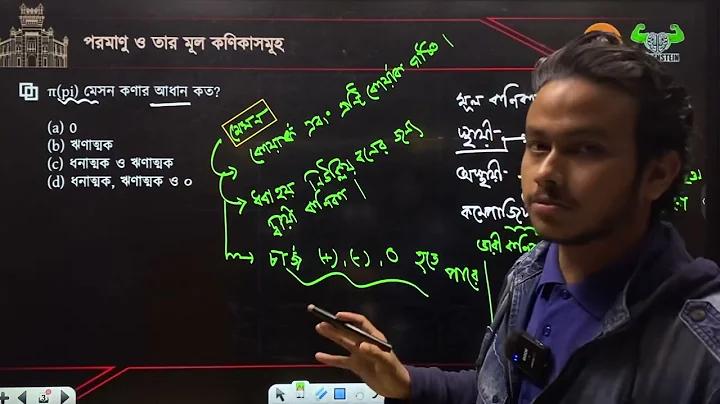 পরমাণু ও তার মূল কণিকাসমূহ
π(pi) মেসন কণার আধান কত?
(a) 0
(b) ঋণাত্মক
(c) ধনাত্মক ও ঋণাত্মক
(d) ধনাত্মক, ঋণাত্মক ও ০
মেসন
কোয়ার্ক এবং এন্টি কোয়ার্ক
ধরা হয় নিউক্লিয় বলের জন্য
দায়ী কণিকা।
চার্জ (+), (-), 0 হতে
পারে
মূল কণিকা
স্থায়ী-
অস্থায়ী-
ভারী